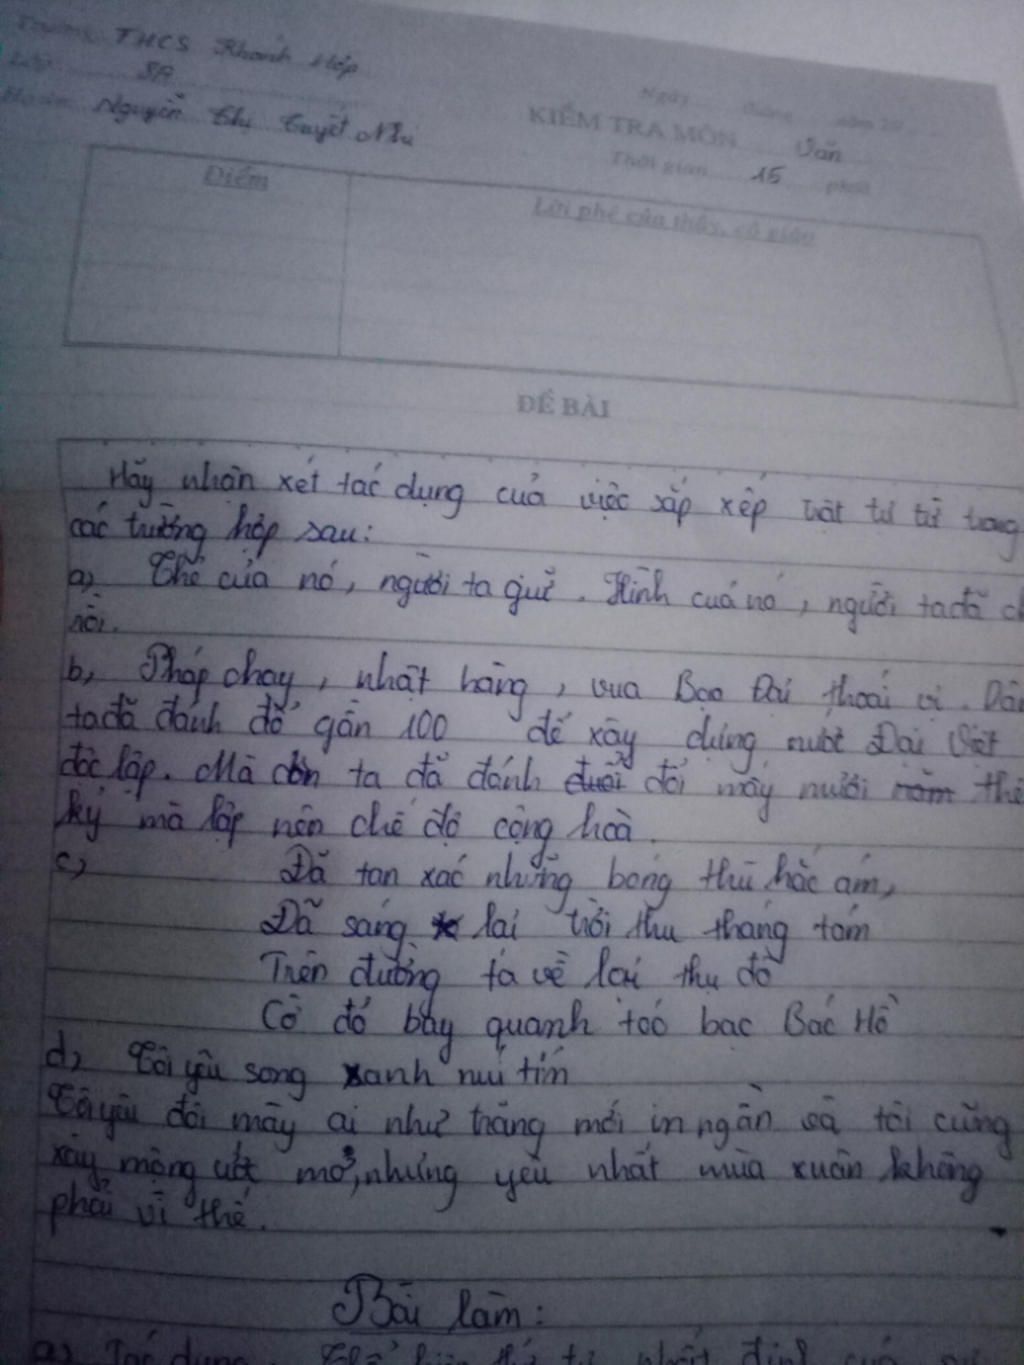 Trường THCS Khánh Hợp
Lớp 8A
Nguyễn Thị Tuyết Như
Ngày tháng năm 20
KIỂM TRA MÔN Văn
Thời gian 15 phút
Điểm
Lời phê của thầy, cô giáo
ĐỀ BÀI
Hãy nhận xét tác dụng của việc sắp xếp trật tự từ trong
các trường hợp sau:
a) Thẻ của nó, người ta giữ. Hình của nó, người ta đã
rồi.
b, Pháp chạy, nhật hàng, vua Bảo Đại thoái vị. Dân
ta đã đánh đổ gần 100 để xây dựng nước Đại Việt
độc lập. Mà còn ta đã đánh đuổi đổi mấy mươi năm thế
kỷ mà lập nên chế độ cộng hoà.
c) Đã tan xác những bóng thù hắc ám,
Đã sáng lại trời thu tháng tám
Trên đường ta về lại thủ đô
Cờ đỏ bay quanh tóc bạc Bác Hồ
d, Tôi yêu sông xanh núi tím
Tôi yêu đôi mày ai như trăng mới in ngần và tôi cũng
xây mộng ước mơ, nhưng yêu nhất mùa xuân không
phải vì thế.
Bài làm:
a) Tác dụng: